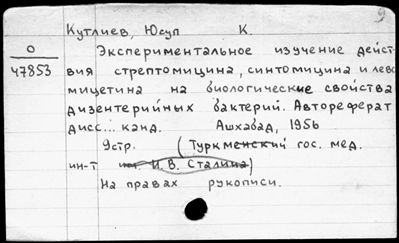 9
Кутлиев, Юсуп К.
О
47853
Экспериментальное изучение дейст-
вия стрептомицина, синтомицина и лево
мицетина на биологические свойства
дизентерийных бактерий. Автореферат
дисс... канд. Ашхабад, 1956
9стр. (Туркменский гос. мед.
ин-т им. И. В. Сталина)
На правах рукописи.